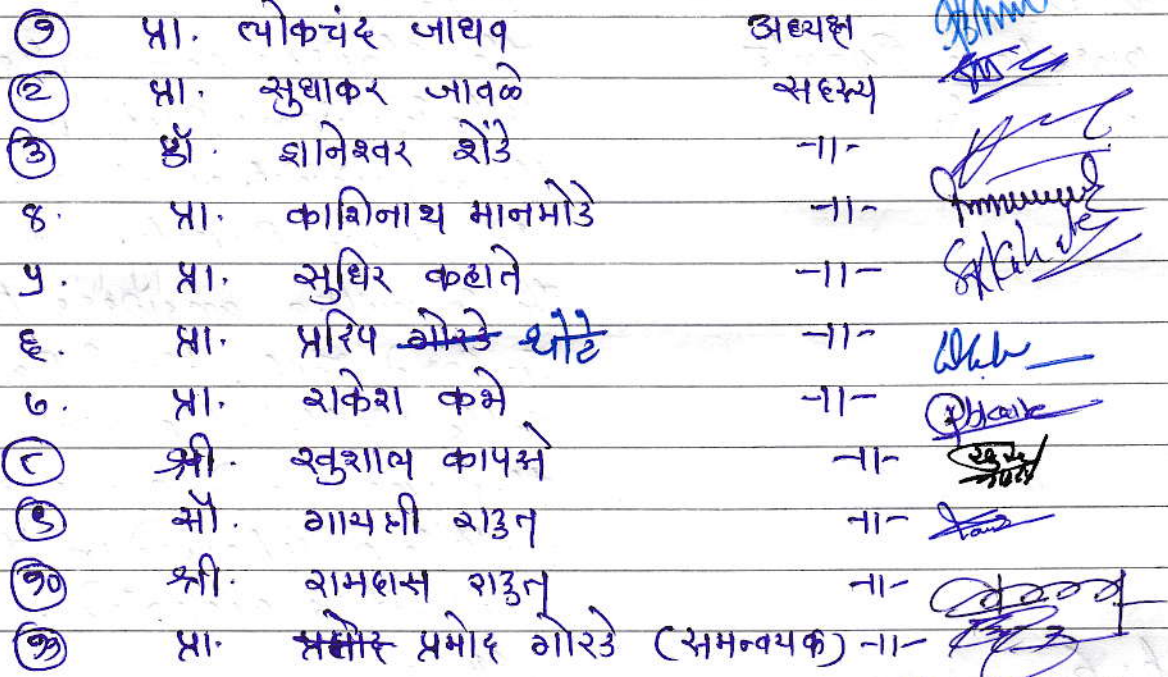 १ प्रा. त्र्योकचंद जाधव अध्यक्ष
२ प्रा. सुधाकर जावळे सदस्य
३ डॉ. ज्ञानेश्वर शेंडे -॥-
४. प्रा. काशिनाथ मानमोडे -॥-
५. प्रा. सुधिर कहाते -॥-
६. प्रा. प्रदिप गोरडे थोटे -॥-
७. प्रा. राकेश कभे -॥-
८ श्री. खुशाल कापसे -॥-
९ सौ. गायत्री राऊत -॥-
१० श्री. रामदास राऊत -॥-
११ प्रा. प्रमोद प्रमोद गोरडे (समन्वयक) -॥-